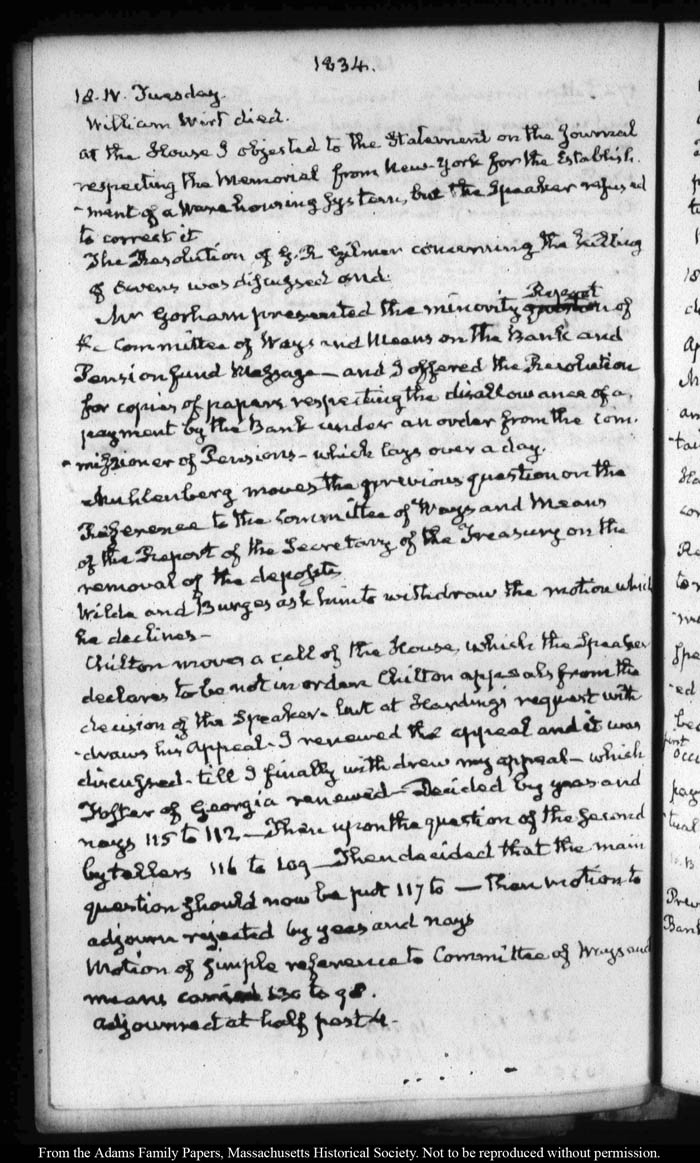 1834.
18. IV. Tuesday.
William Wirt died.
At the House I objected to the Statement on the Journal
respecting the Memorial from New-York for the Establish-
-ment of a Warehousing System, but the Speaker refused
to correct it
The Resolution of G. R. Gilmer concerning the killing
of Owens was discussed and.
Mr Gorham presented the minority question Report of
the Committee of Ways and Means on the Bank and
Pension fund Message—and I offered the Resolution
for copies of papers respecting the disallowance of a
payment by the Bank under an order from the Com-
-missioner of Pensions—which lays over a day.
Muhlenberg moves the previous question on the
Reference to the Committee of Ways and Means
of the Report of the Secretary of the Treasury on the
removal of the deposits
Wilde and Burges ask him to withdraw the motion which
he declines—
Chilton moves a call of the House, which the Speaker
declares to be not in order. Chilton appeals from the
decision of the Speaker—but at Hardings request with
-draws his Appeal—I renewed the appeal and it was
discussed—till I finally withdrew my appeal—which
Foster of Georgia renewed—Decided by yeas and
nays 115 to 112—Then upon the question of the Second
by tellers 116 to 109—Then decided that the main
question should now be put 117 to — Then motion to
adjourn rejected by yeas and nays
Motion of simple reference to Committee of Ways and
means carried 130 to 98.
adjourned at half past 4.
From the Adams Family Papers, Massachusetts Historical Society. Not to be reproduced without permission.